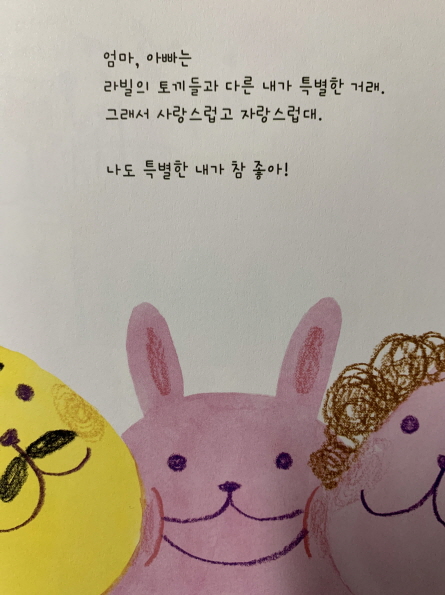 엄마, 아빠는
라빌의 토끼들과 다른 내가 특별한 거래.
그래서 사랑스럽고 자랑스럽대.
나도 특별한 내가 참 좋아!